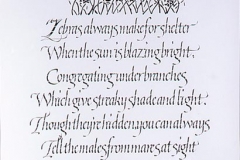 Zebras always make for shelter
When the sun is blazing bright,
Congregating under branches
Which give streaky shade and light.
Though they're hidden, you can always
Tell the males from mares at sight